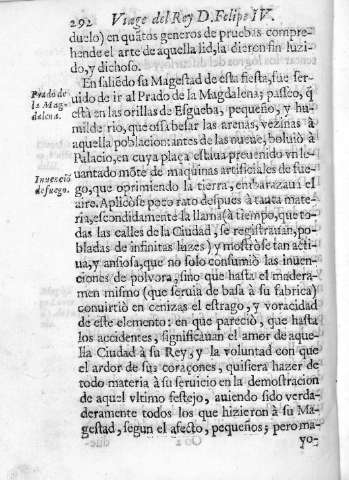 292 Viage del Rey D. Felipe IV.
duelo) en quãtos generos de pruebas compre-
hende el arte de aquella lid, la dieron fin luzi-
do, y dichoso.
En saliẽdo su Magestad de esta fiesta, fue ser-
Prado de
la Mag-
dalena.
uido de ir al Prado de la Magdalena; paseo, q̃
està en las orillas de Esgueba, pequeño, y hu-
milde rio, que ossa besar las arenas, vezinas à
aquella poblacion: antes de las nueue, boluiò à
Palacio, en cuya plaça estaua preuenido vn le-
Inuenciõ
de fuego.
uantado mõte de maquinas artificiales de fue-
go, que oprimiendo la tierra, embarazaui el
aire. Aplicòse poco rato despues à tanta mate-
ria, escondidamente la llama (à tiempo, que to-
das las calles de la Ciudad, se registrauan, po-
bladas de infinitas luzes) y mostròse tan acti-
ua, y ansiosa, que no solo consumiò las inuen-
ciones de poluora, sino que hasta el madera-
men mismo (que seruia de basa à su fabrica)
conuirtiò en cenizas el estrago, y voracidad
de este elemento: en que pareciò, que hasta
los accidentes, significauan el amor de aque-
lla Ciudad à su Rey, y la voluntad con que
el ardor de sus coraçones, quisiera hazer de
todo materia à su seruicio en la demostracion
de aquel vltimo festejo, auiendo sido verda-
deramente todos los que hizieron à su Ma-
gestad, segun el afecto, pequeños; pero ma-
yo-